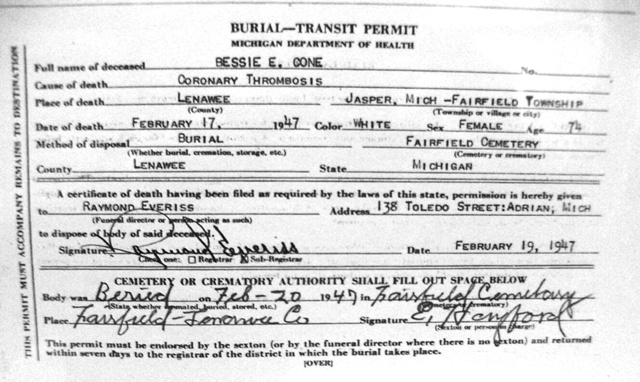 BURIAL—TRANSIT PERMIT
MICHIGAN DEPARTMENT OF HEALTH
Full name of deceased BESSIE E. CONE No.
Cause of death CORONARY THROMBOSIS
Place of death LENAWEE JASPER, MICH -FAIRFIELD TOWNSHIP
(County) (Township or village or city)
Date of death FEBRUARY 17, 1947 Color WHITE Sex FEMALE Age 74
Method of disposal BURIAL FAIRFIELD CEMETERY
(Whether burial, cremation, storage, etc.) (Cemetery or crematory)
County LENAWEE State MICHIGAN
A certificate of death having been filed as required by the laws of this state, permission is hereby given
to RAYMOND EVERISS Address 138 TOLEDO STREET:ADRIAN, MICH
(Funeral director or person acting as such)
to dispose of body of said deceased.
Signature Raymond Everiss Date FEBRUARY 19, 1947
Check one: Registrar X Sub-Registrar
CEMETERY OR CREMATORY AUTHORITY SHALL FILL OUT SPACE BELOW
Body was Beried on Feb-20 1947 in Fairfield Cemetary
(State whether cremated, buried, stored, etc.) (Cemetery or crematory)
Place Fairfield-Lenawee Co Signature E,
(Sexton or person in charge)
This permit must be endorsed by the sexton (or by the funeral director where there is no sexton) and returned
within seven days to the registrar of the district in which the burial takes place.
[OVER]
THIS PERMIT MUST ACCOMPANY REMAINS TO DESTINATION